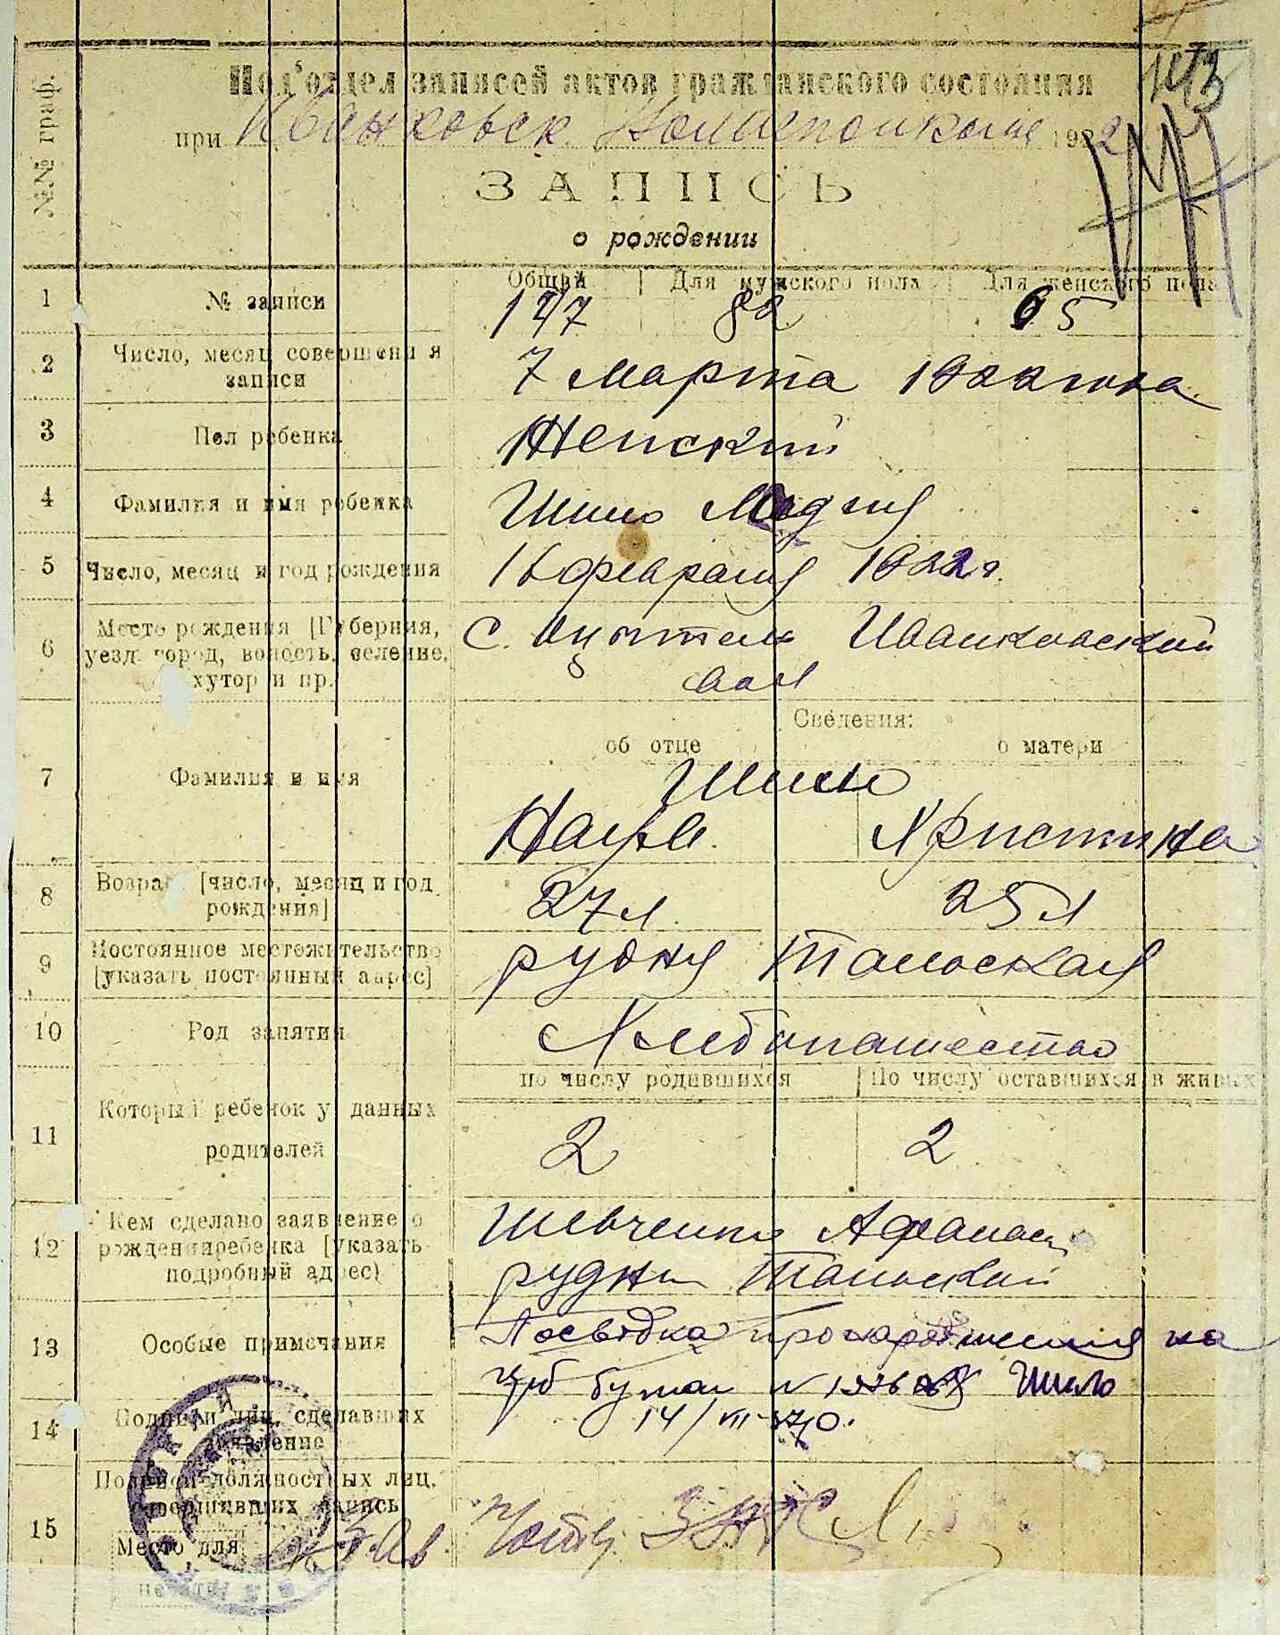 №№ граф.
Под'отдел записей актов гражданского состояния
при Иванковск. 1922
143
ЗАПИСЬ
о рождении
Общий Для мужского пола Для женского пола
1 № записи 147 82 65
2 Число, месяц совершения записи 7 Марта 1922 года
3 Пол ребенка Женский
4 Фамилия и имя ребенка Шило
5 Число, месяц и год рождения 16 февраля 1922 г.
6 Место рождения [Губерния, уезд, город, волость, селение, хутор и пр. с. Иванковский вол
Сведения:
об отце о матери
7 Фамилия и имя Шило
Наум. Христина
8 Возраст [число, месяц и год рождения] 27 л. 25 л
9 Постоянное местожительство [указать постоянный адрес] рудня Тальская
10 Род занятий Хлебопашество
по числу родившихся По числу оставшихся в живых
11 Который ребенок у данных родителей 2 2
12 Кем сделано заявление о рождении ребенка [указать подробный адрес) Шевченко Афанас
рудни Тальской
13 Особые примечания Посвідка про народження на
Шило
14/VII-37 р.
14 Подписи лиц, сделавших заявление
15 Подписи должностных лиц, совершивших запись
Место для печати
ЗАГС